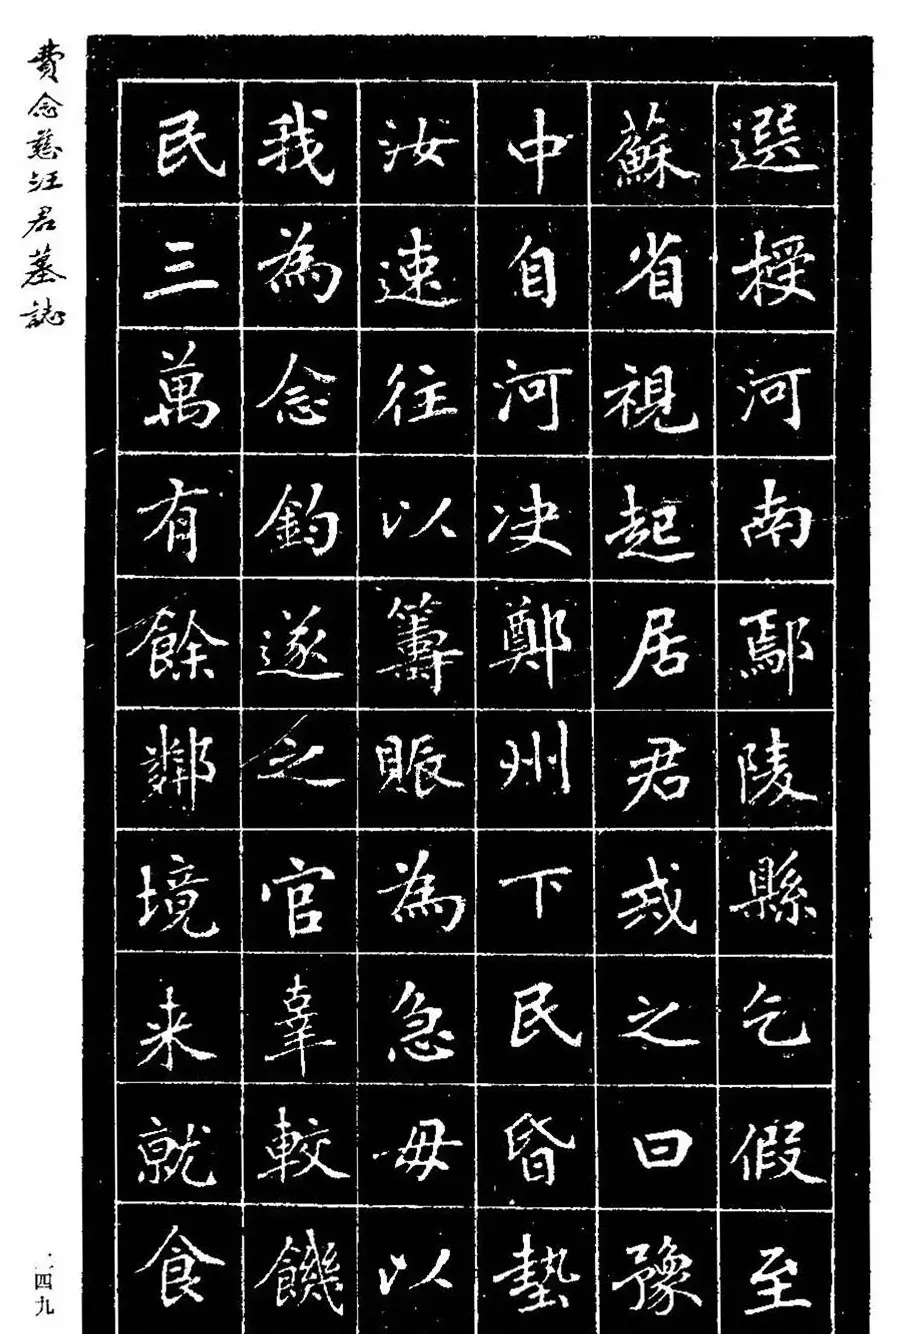 選授河南鄢陵縣乞假至
蘇省視起居君戒之曰豫
中自河決鄭州下民昏墊
汝速往以籌賑為急毋以
我為念鈞遂之官辜較饑
民三萬有餘鄰境来就食
費念慈汪君墓誌
一四九